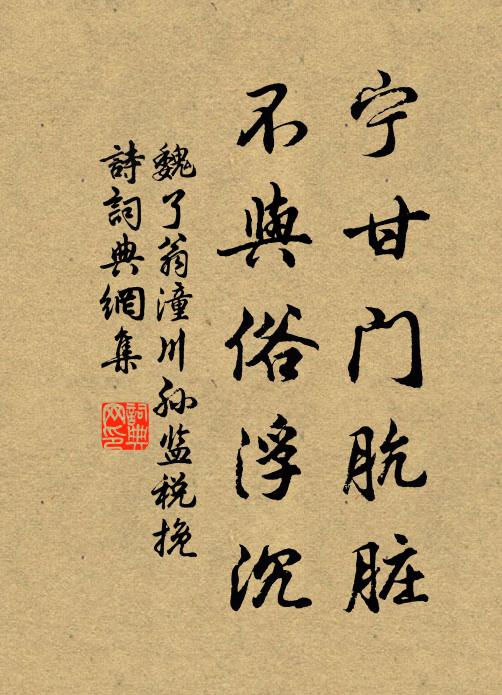 宁甘门肮脏
不與俗浮沉
魏了翁潼川孙监税挽
詩詞典網集
詞典网印